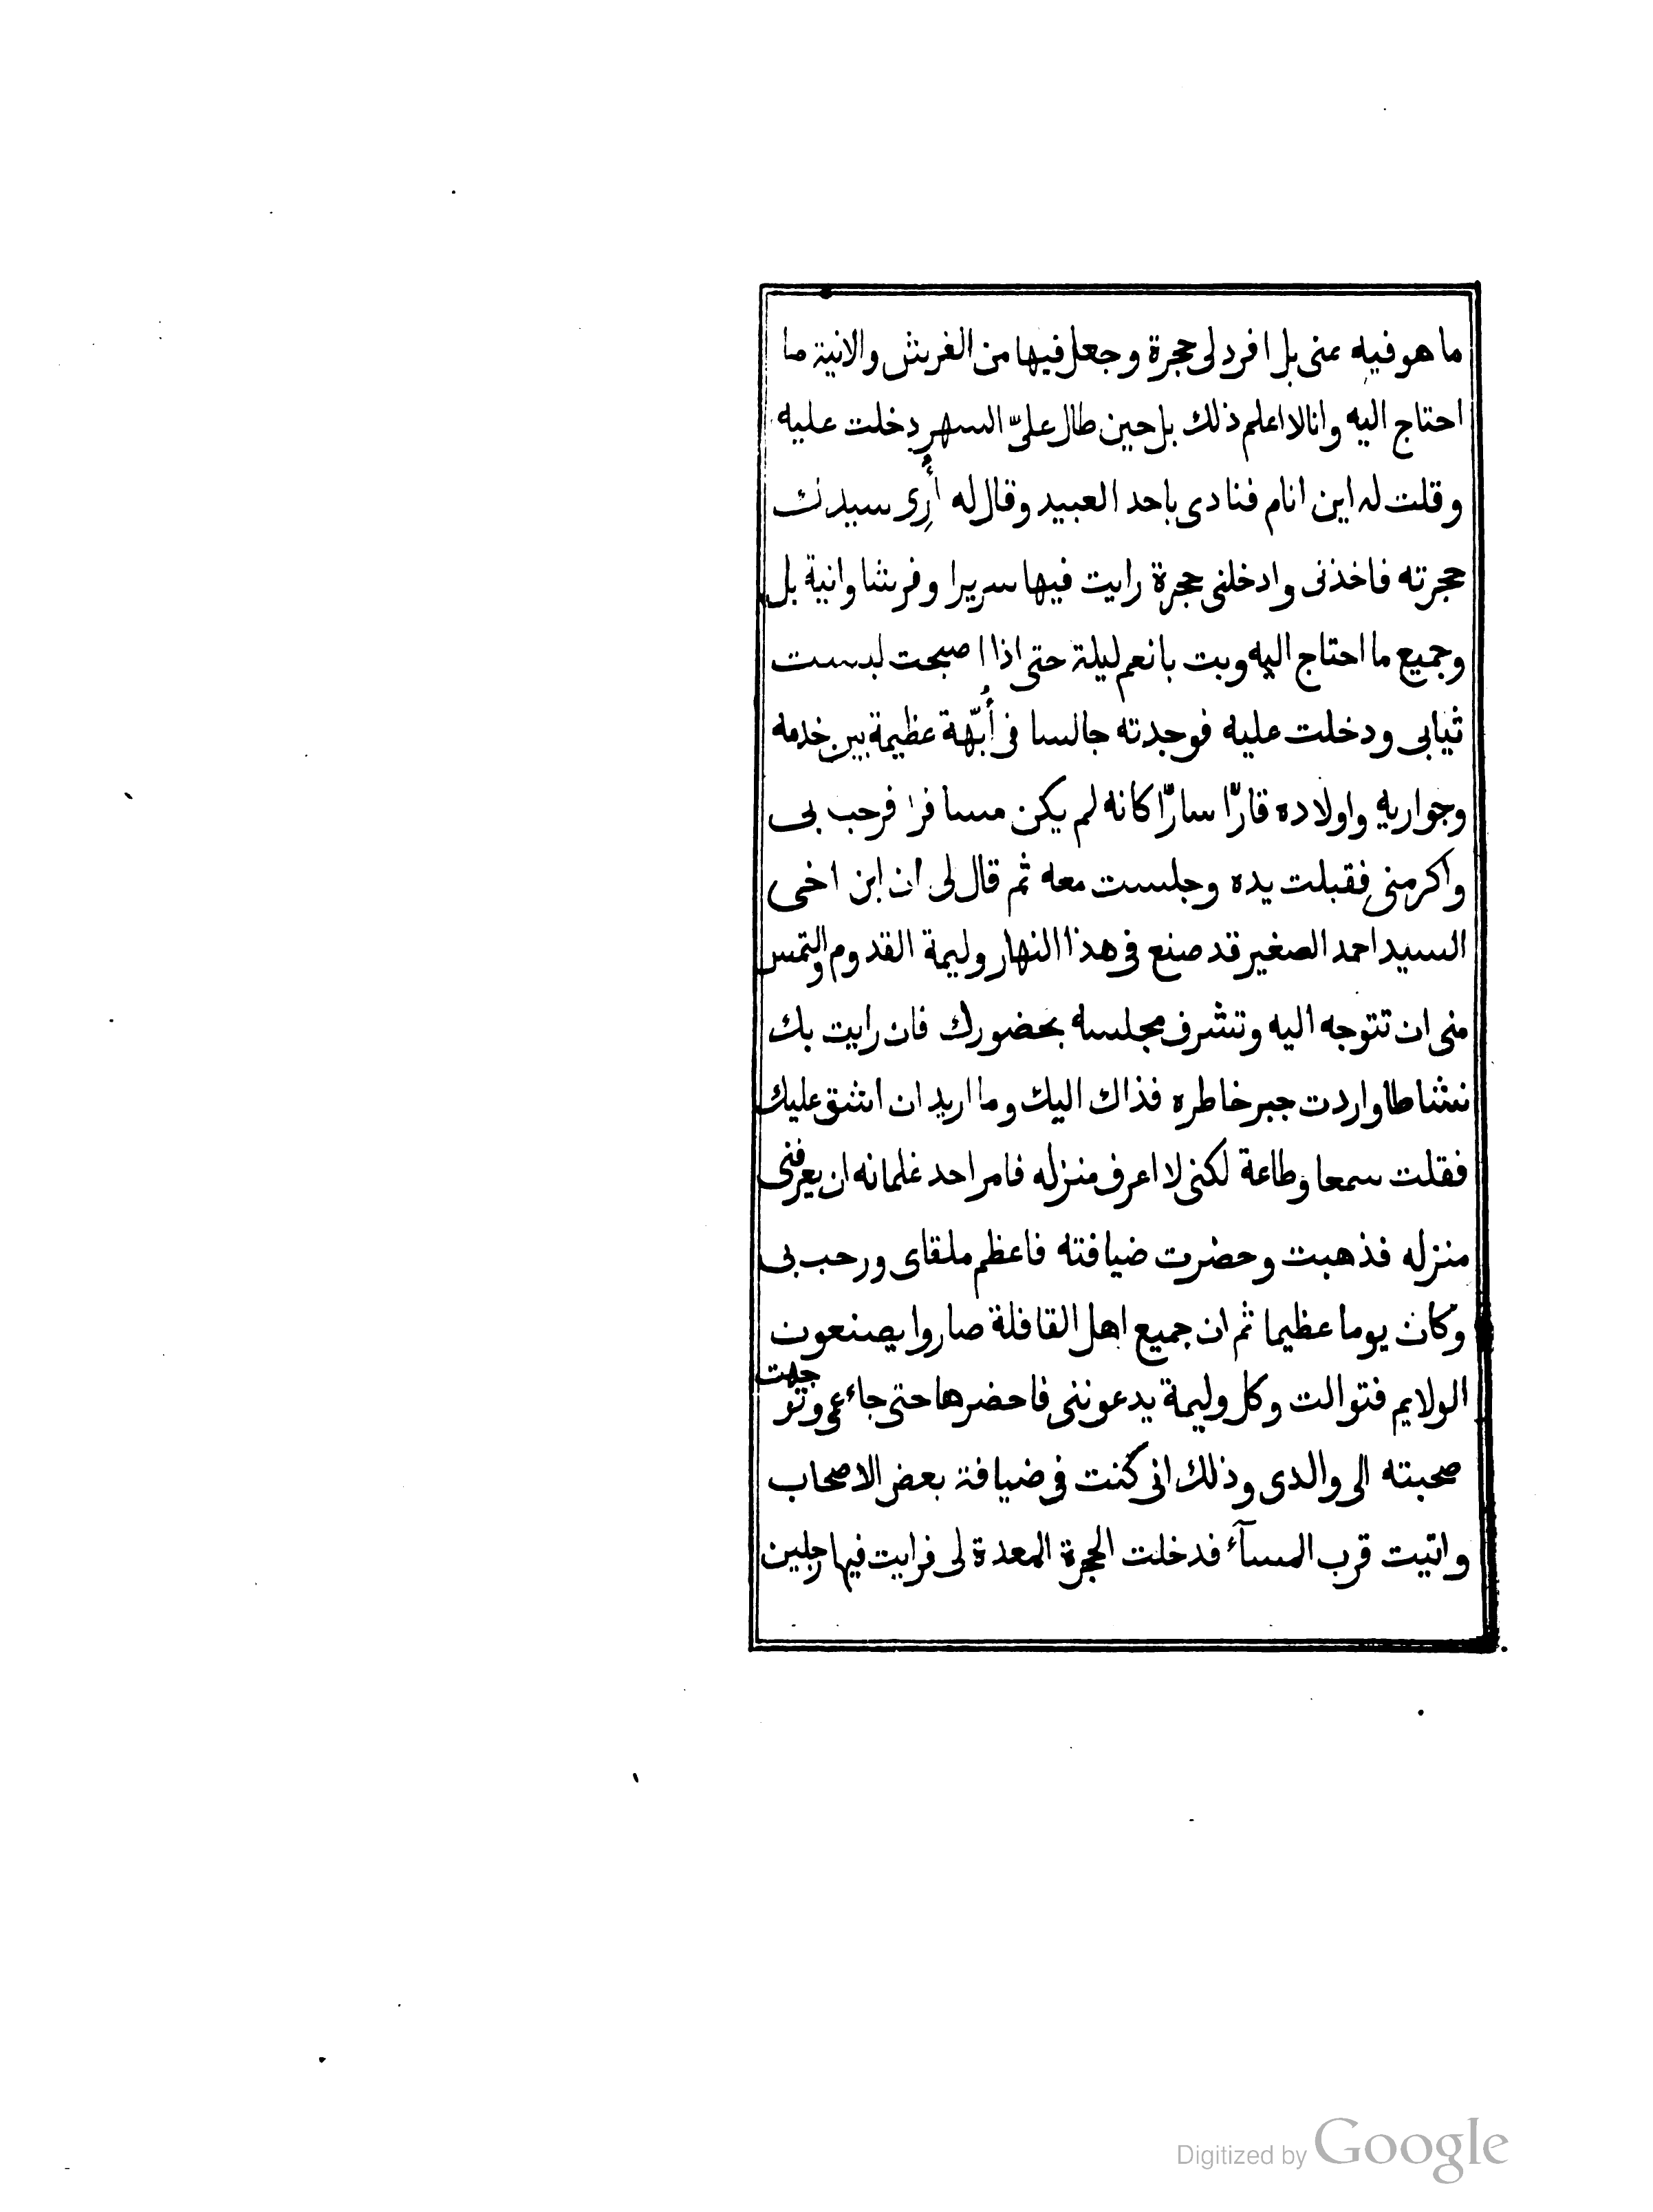 ما هو فيه عنى بل افرد لى حجرة وجعل فيها من الفرش والانية ما
احتاج اليه وانا لا اعلم ذلك بل حين طال علىّ السهر دخلت عليه
وقلت له اين انام فنادى باحد العبيد وقال له أَرِى سيدك
حجرته فاخذنى وادخلنى حجرة رايت فيها سريرا وفرشا وانية بل
وجميع ما احتاج اليه وبت بانعم ليلة حتى اذا اصبحت لبست
ثيابى ودخلت عليه فوجدته جالسا فى أُبّهة عظيمة بين خدمه
وجواريه واولاده قارّا سارّا كانه لم يكن مسافرا فرحب بى
واكرمنى فقبلت يده وجلست معه ثم قال لى ان ابن اخى
السيد احمد الصغير قد صنع فى هذا النهار وليمة القدوم والتمس
منى ان تتوجه اليه وتشرف مجلسه بحضورك فان رايت بك
نشاطا واردت جبر خاطره فذاك اليك وما اريد ان اشق عليك
فقلت سمعا وطاعة لكنى لا اعرف منزله فامر احد غلمانه ان يعرفنى
منزله فذهبت وحضرت ضيافته فاعظم ملقاى ورحب بى
وكان يوما عظيما ثم ان جميع اهل القافلة صاروا يصنعون
الولايم فتوالت وكل وليمة يدعوننى فاحضرها حتى جاء عمى وتوجهت
صحبته الى والدى وذلك انى كنت فى ضيافة بعض الاصحاب
واتيت قرب المسآء فدخلت الحجرة المعدة لى فرايت فيها رجلين
Digitized by Google